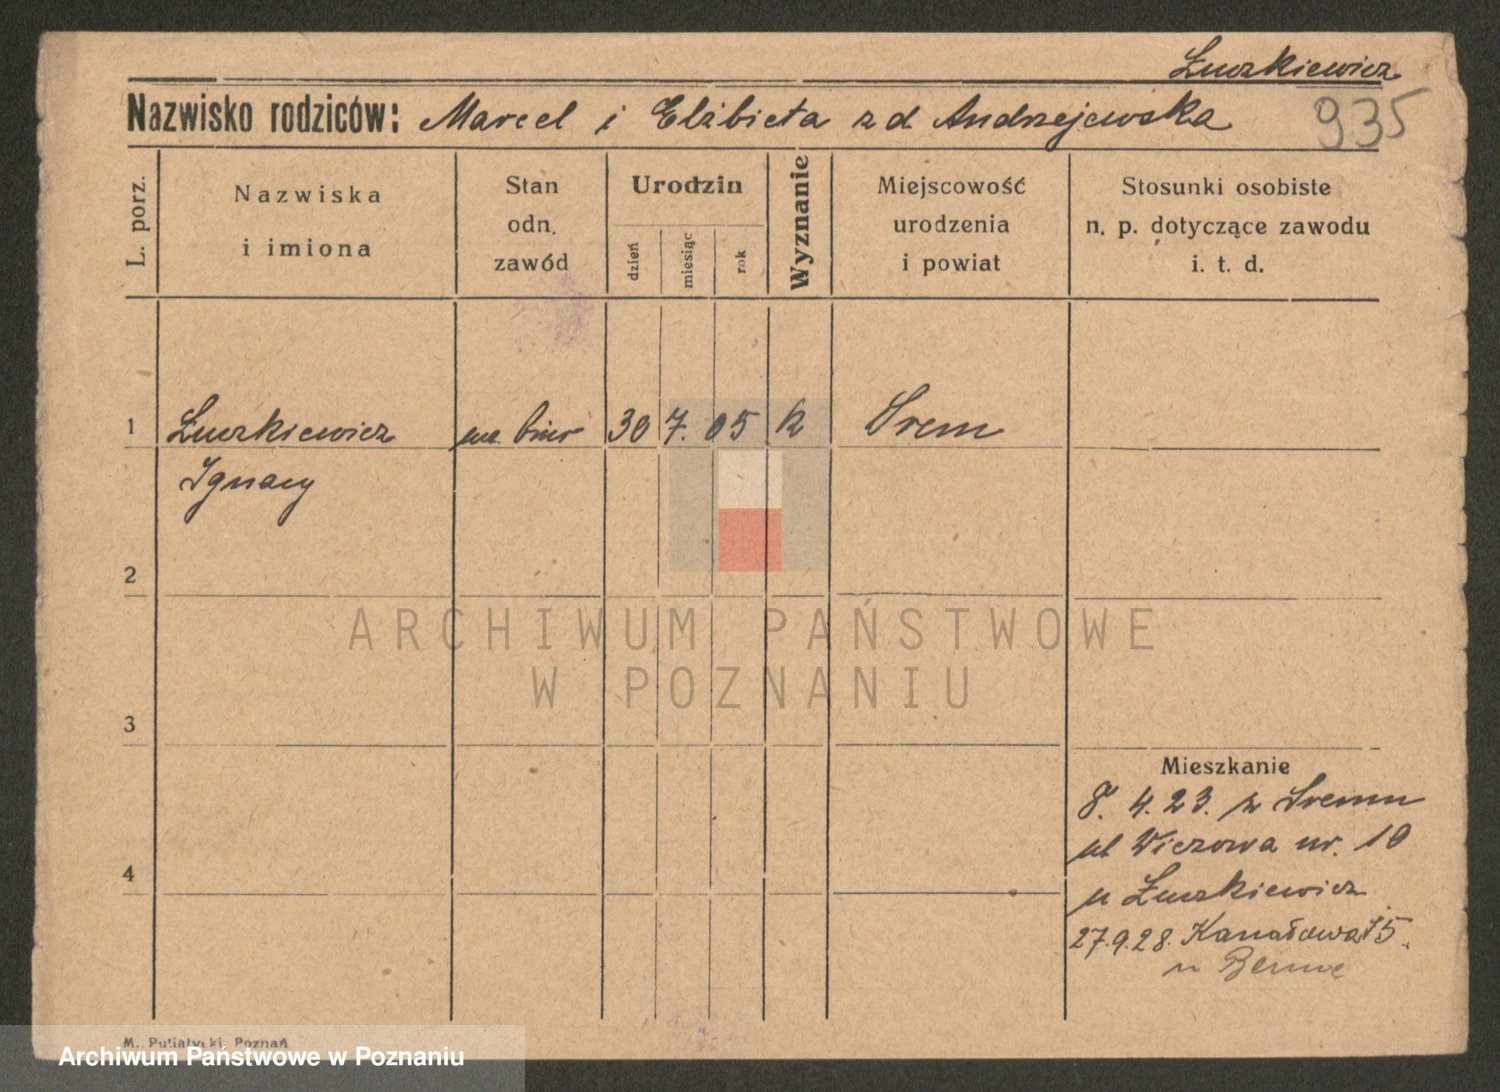 Łuczkiewicz
Nazwisko rodziców: Marcel i Elżbieta z d Andrzejewska 935
L. porz.
Nazwiska
i imiona
Stan
odn.
zawód
Urodzin
dzień
miesiąc
rok
Wyznanie
Miejscowość
urodzenia
i powiat
Stosunki osobiste
n. p. dotyczące zawodu
i. t. d.
1 Łuczkiewicz biur 30 7. 05 k Srem
Ignacy
2
ARCHIWUM PAŃSTWOWE
W POZNANIU
3
Mieszkanie
8. 4. 23. z Sremu
ul Wiezowa nr. 10
4
u Łuczkiewicz
27.9.28. Kanałowa 15.
u
M. Putiatycki, Poznań
Archiwum Państwowe w Poznaniu